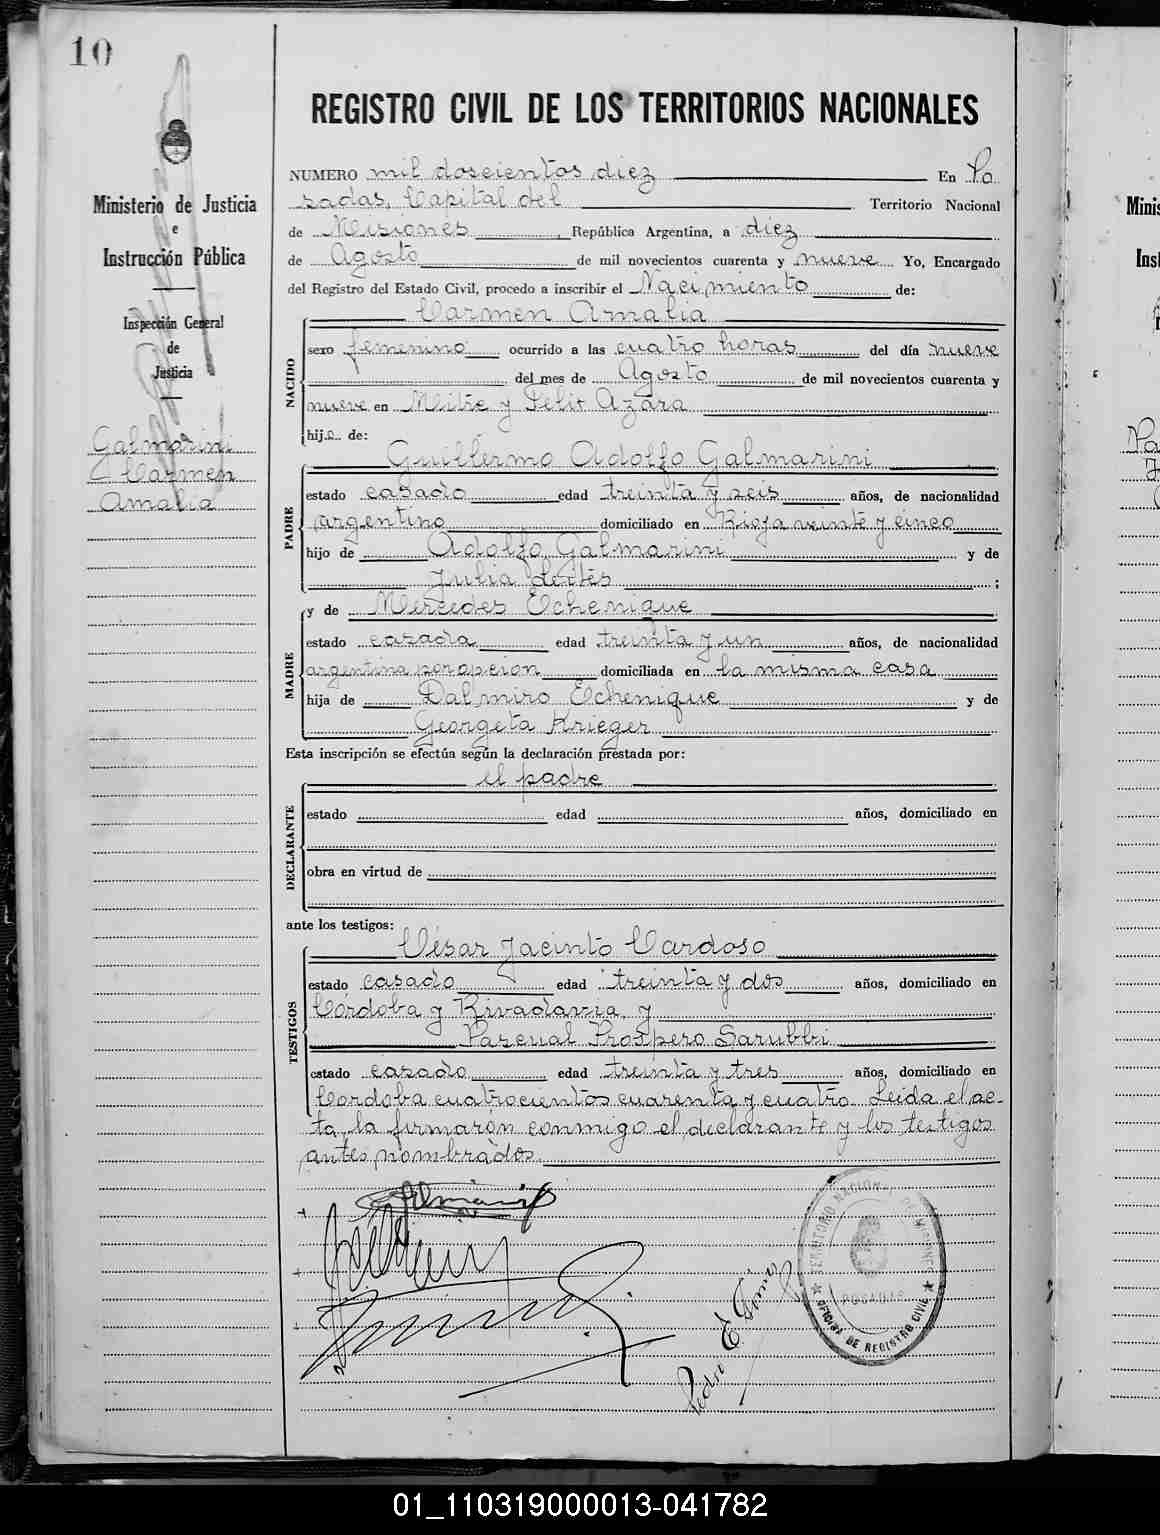 10
REGISTRO CIVIL DE LOS TERRITORIOS NACIONALES
Ministerio de Justicia
e
Instrucción Pública
Inspección General
de
Justicia
Galmarini
Carmen
Amalia
NUMERO mil doscientos diez En Po
sadas, Capital del Territorio Nacional
de Misiones, República Argentina, a diez
de Agosto de mil novecientos cuarenta y nueve Yo, Encargado
del Registro del Estado Civil, procedo a inscribir el Nacimiento de:
NACIDO
Carmen Amalia
sexo femenino ocurrido a las cuatro horas del día nueve
del mes de Agosto de mil novecientos cuarenta y
nueve en Mitre y Felix Azara
hija de:
PADRE
Guillermo Adolfo Galmarini
estado casado edad treinta y seis años, de nacionalidad
argentino domiciliado en Rioja veinte y cinco
hijo de Adolfo Galmarini y de
Julia ;
MADRE
y de Mercedes Echenique
estado casada edad treinta y un años, de nacionalidad
argentina por opcion domiciliada en la misma casa
hija de Dalmiro Echenique y de
Georgeta Krieger
Esta inscripción se efectúa según la declaración prestada por:
DECLARANTE
el padre
estado edad años, domiciliado en
obra en virtud de
ante los testigos:
TESTIGOS
César Jacinto Cardoso
estado casado edad treinta y dos años, domiciliado en
Córdoba y Rivadavia, y
Pascual Prospero Sarubbi
estado casado edad treinta y tres años, domiciliado en
Córdoba cuatrocientos cuarenta y cuatro. Leída el ac-
ta, la firmaron conmigo el declarante y los testigos
antes nombrados.
TERRITORIO NACIONAL DE MISIONES
POSADAS
OFICINA DE REGISTRO CIVIL
Pedro E.
01_110319000013-041782